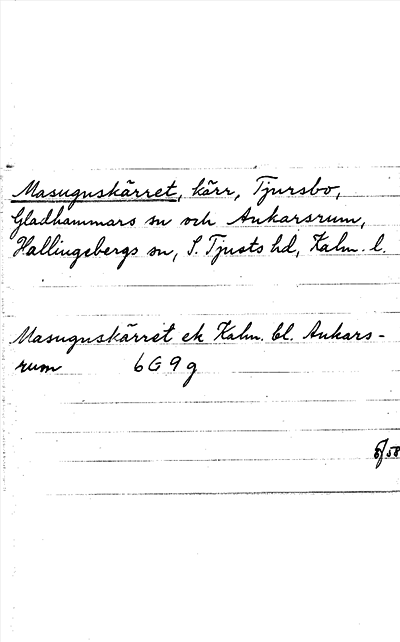 Masugnskärret, kärr, Tjursbo,
Gladhammars sn och Ankarsrum,
Hallingebergs sn, S. Tjusts hd, Kalm. l.
Masugnskärret ek Kalm. bl. Ankars-
rum 6G9g
5/58